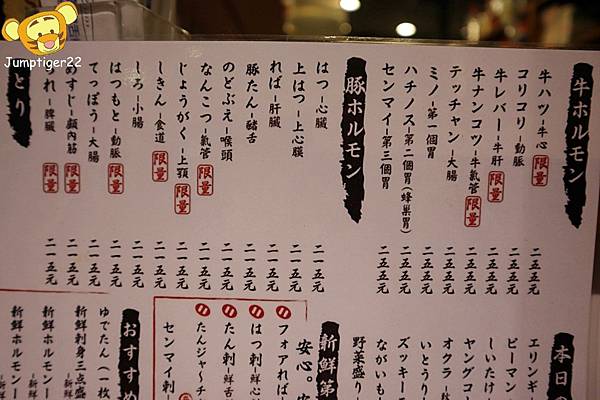 Jumptiger22
牛ホルモン
牛ハツ–牛心 限量 二五五元
コリコリ–動脈 二五五元
牛レバー–牛肝 限量 二五五元
牛ナンコツ–牛氣管 限量 二五五元
テッチャン–大腸 二五五元
ミノ–第一個胃 二五五元
ハチノス–第二個胃(蜂巢胃) 二五五元
センマイ–第三個胃 二五五元
豚ホルモン
はつ–心臟 二一五元
上はつ–上心膜 二一五元
ればー–肝臟 二一五元
豚たん–豬舌 二一五元
のどぶえ–喉頭 二一五元
なんこつ–氣管 限量 二一五元
じょうがく–上顎 限量 二一五元
しきん–食道 限量 二一五元
しろ–小腸 二一五元
はつもと–動脈 限量 二一五元
てっぽう–大腸 二一五元
めすじ–顏內筋 限量 二一五元
れ–脾臟 限量 二一五元
とり
本日の
エリンギ
ピーマン
しいたけ
ヤングコー
オクラ–
いとうり
ズッキー
ながいも
野菜盛り
新鮮第
安心。安
フォアれば
はつ刺–鮮心
たん刺–鮮舌
たんジャーチ
センマイ刺–
おすすめ
ゆでたん(一枚
新鮮刺身三点盛
新鮮ホルモンー
–新鮮
新鮮ホルモン
–新鮮